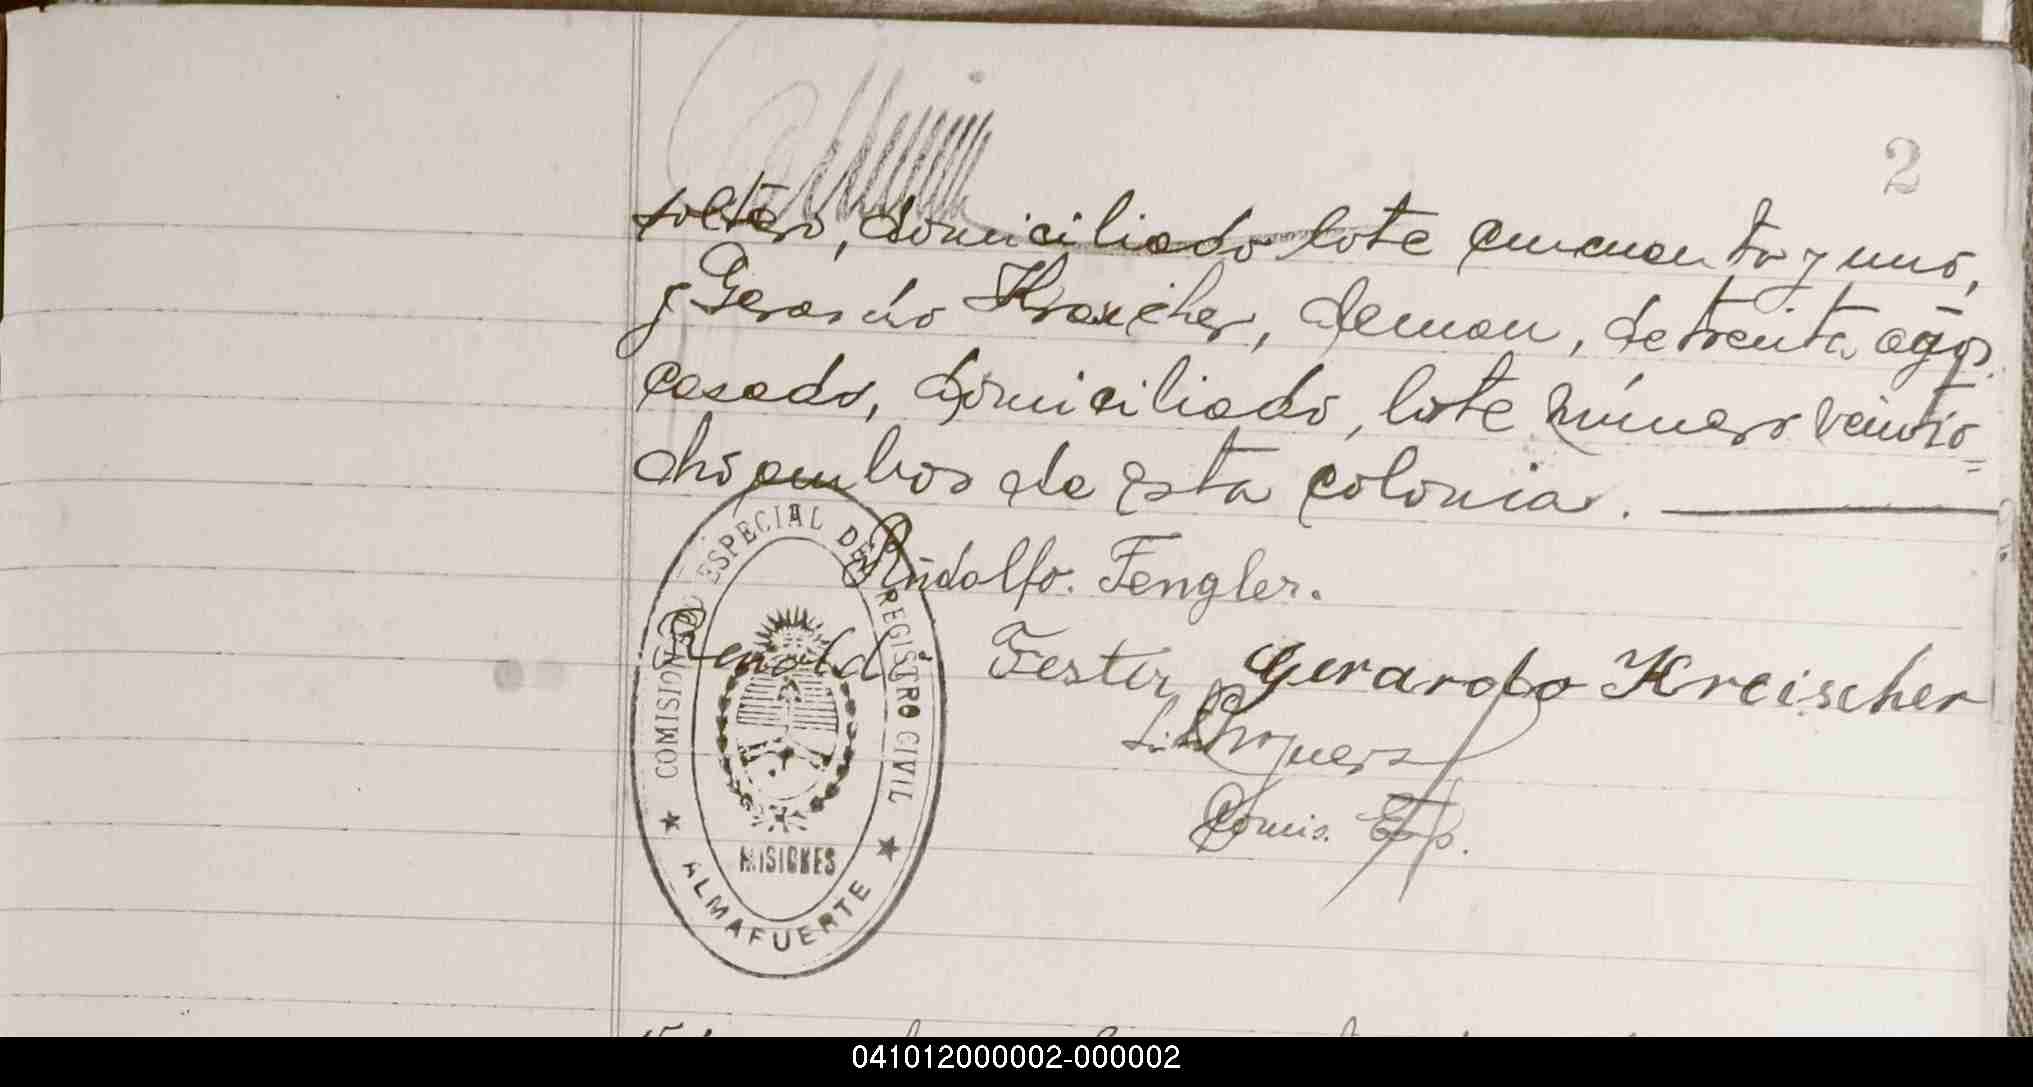 2
soltero, domiciliado lote cincuenta y uno,
y Gerardo Kraicher, aleman, de treinta años
casado, domiciliado, lote número veintio=
cho ambos de esta colonia.
Rudolfo. Fengler.
Renold Fester Gerardo Kreischer
Comis. Esp.
COMISIONADO ESPECIAL DEL REGISTRO CIVIL
MISIONES
ALMAFUERTE
041012000002-000002